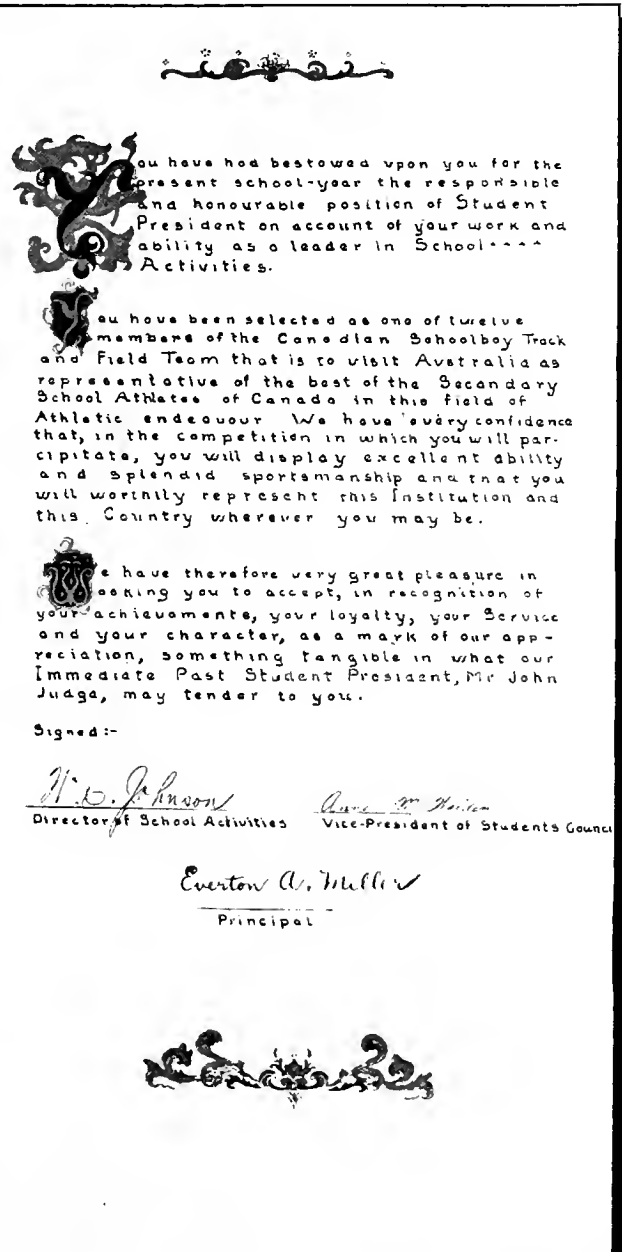 You have had bestowed upon you for the
present school-year the responsible
and honourable position of Student
President on account of your work and
ability as a leader in School----
Activities.
You have been selected as one of twelve
members of the Canadian Schoolboy Track
and Field Team that is to visit Australia as
representative of the best of the Secondary
School Athletes of Canada in this field of
Athletic endeavour We have every confidence
that, in the competition in which you will par-
cipitate, you will display excellent ability
and splendid sportsmanship and that you
will worthily represent this Institution and
this Country wherever you may be.
We have therefore very great pleasure in
asking you to accept, in recognition of
your achievements, your loyalty, your Service
and your character, as a mark of our app-
reciation, something tangible in what our
Immediate Past Student President, Mr John
Judge, may tender to you.
Signed:-
W. D. Johnson Anne M
Director of School Activities Vice-President of Students Counci
Everton A. Miller
Principal